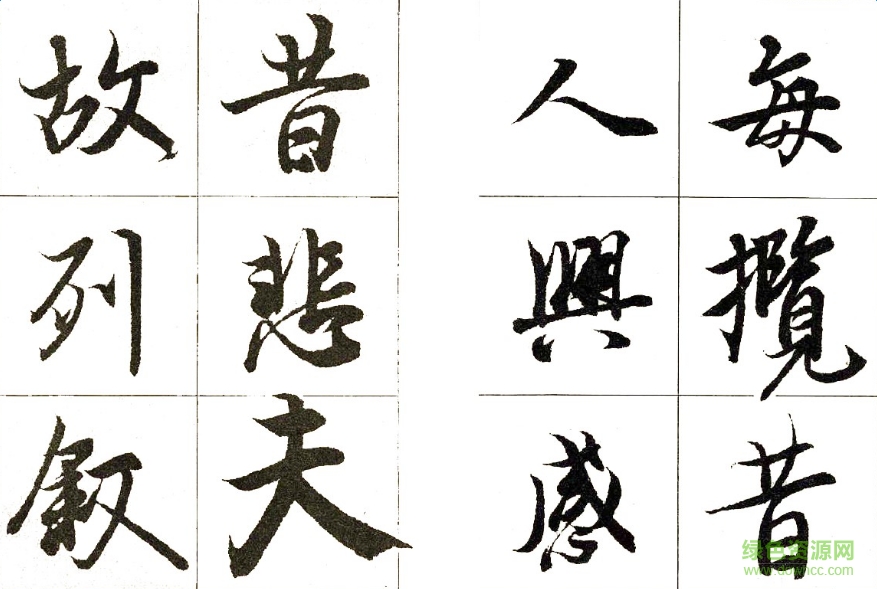 每攬昔
人興感
昔悲夫
故列敘
绿色资源网
www.downcc.com